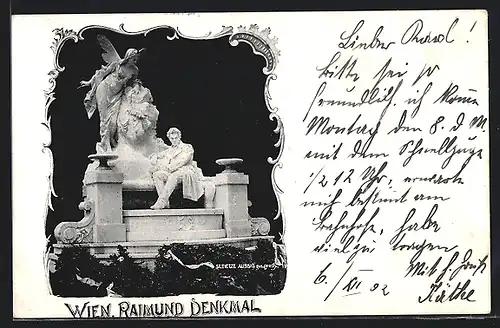 Lieber Karl!
bitte sei so
freundlich, ich komme
Montag den 8. d. M.
mit dem Schnellzuge
1/2 12 Uhr, erwarte
mich bestimmt am
Bahnhofe, habe
viel zu sagen
Mit h. Gruß
Käthe
6./XI 02
WIEN, RAIMUND DENKMAL